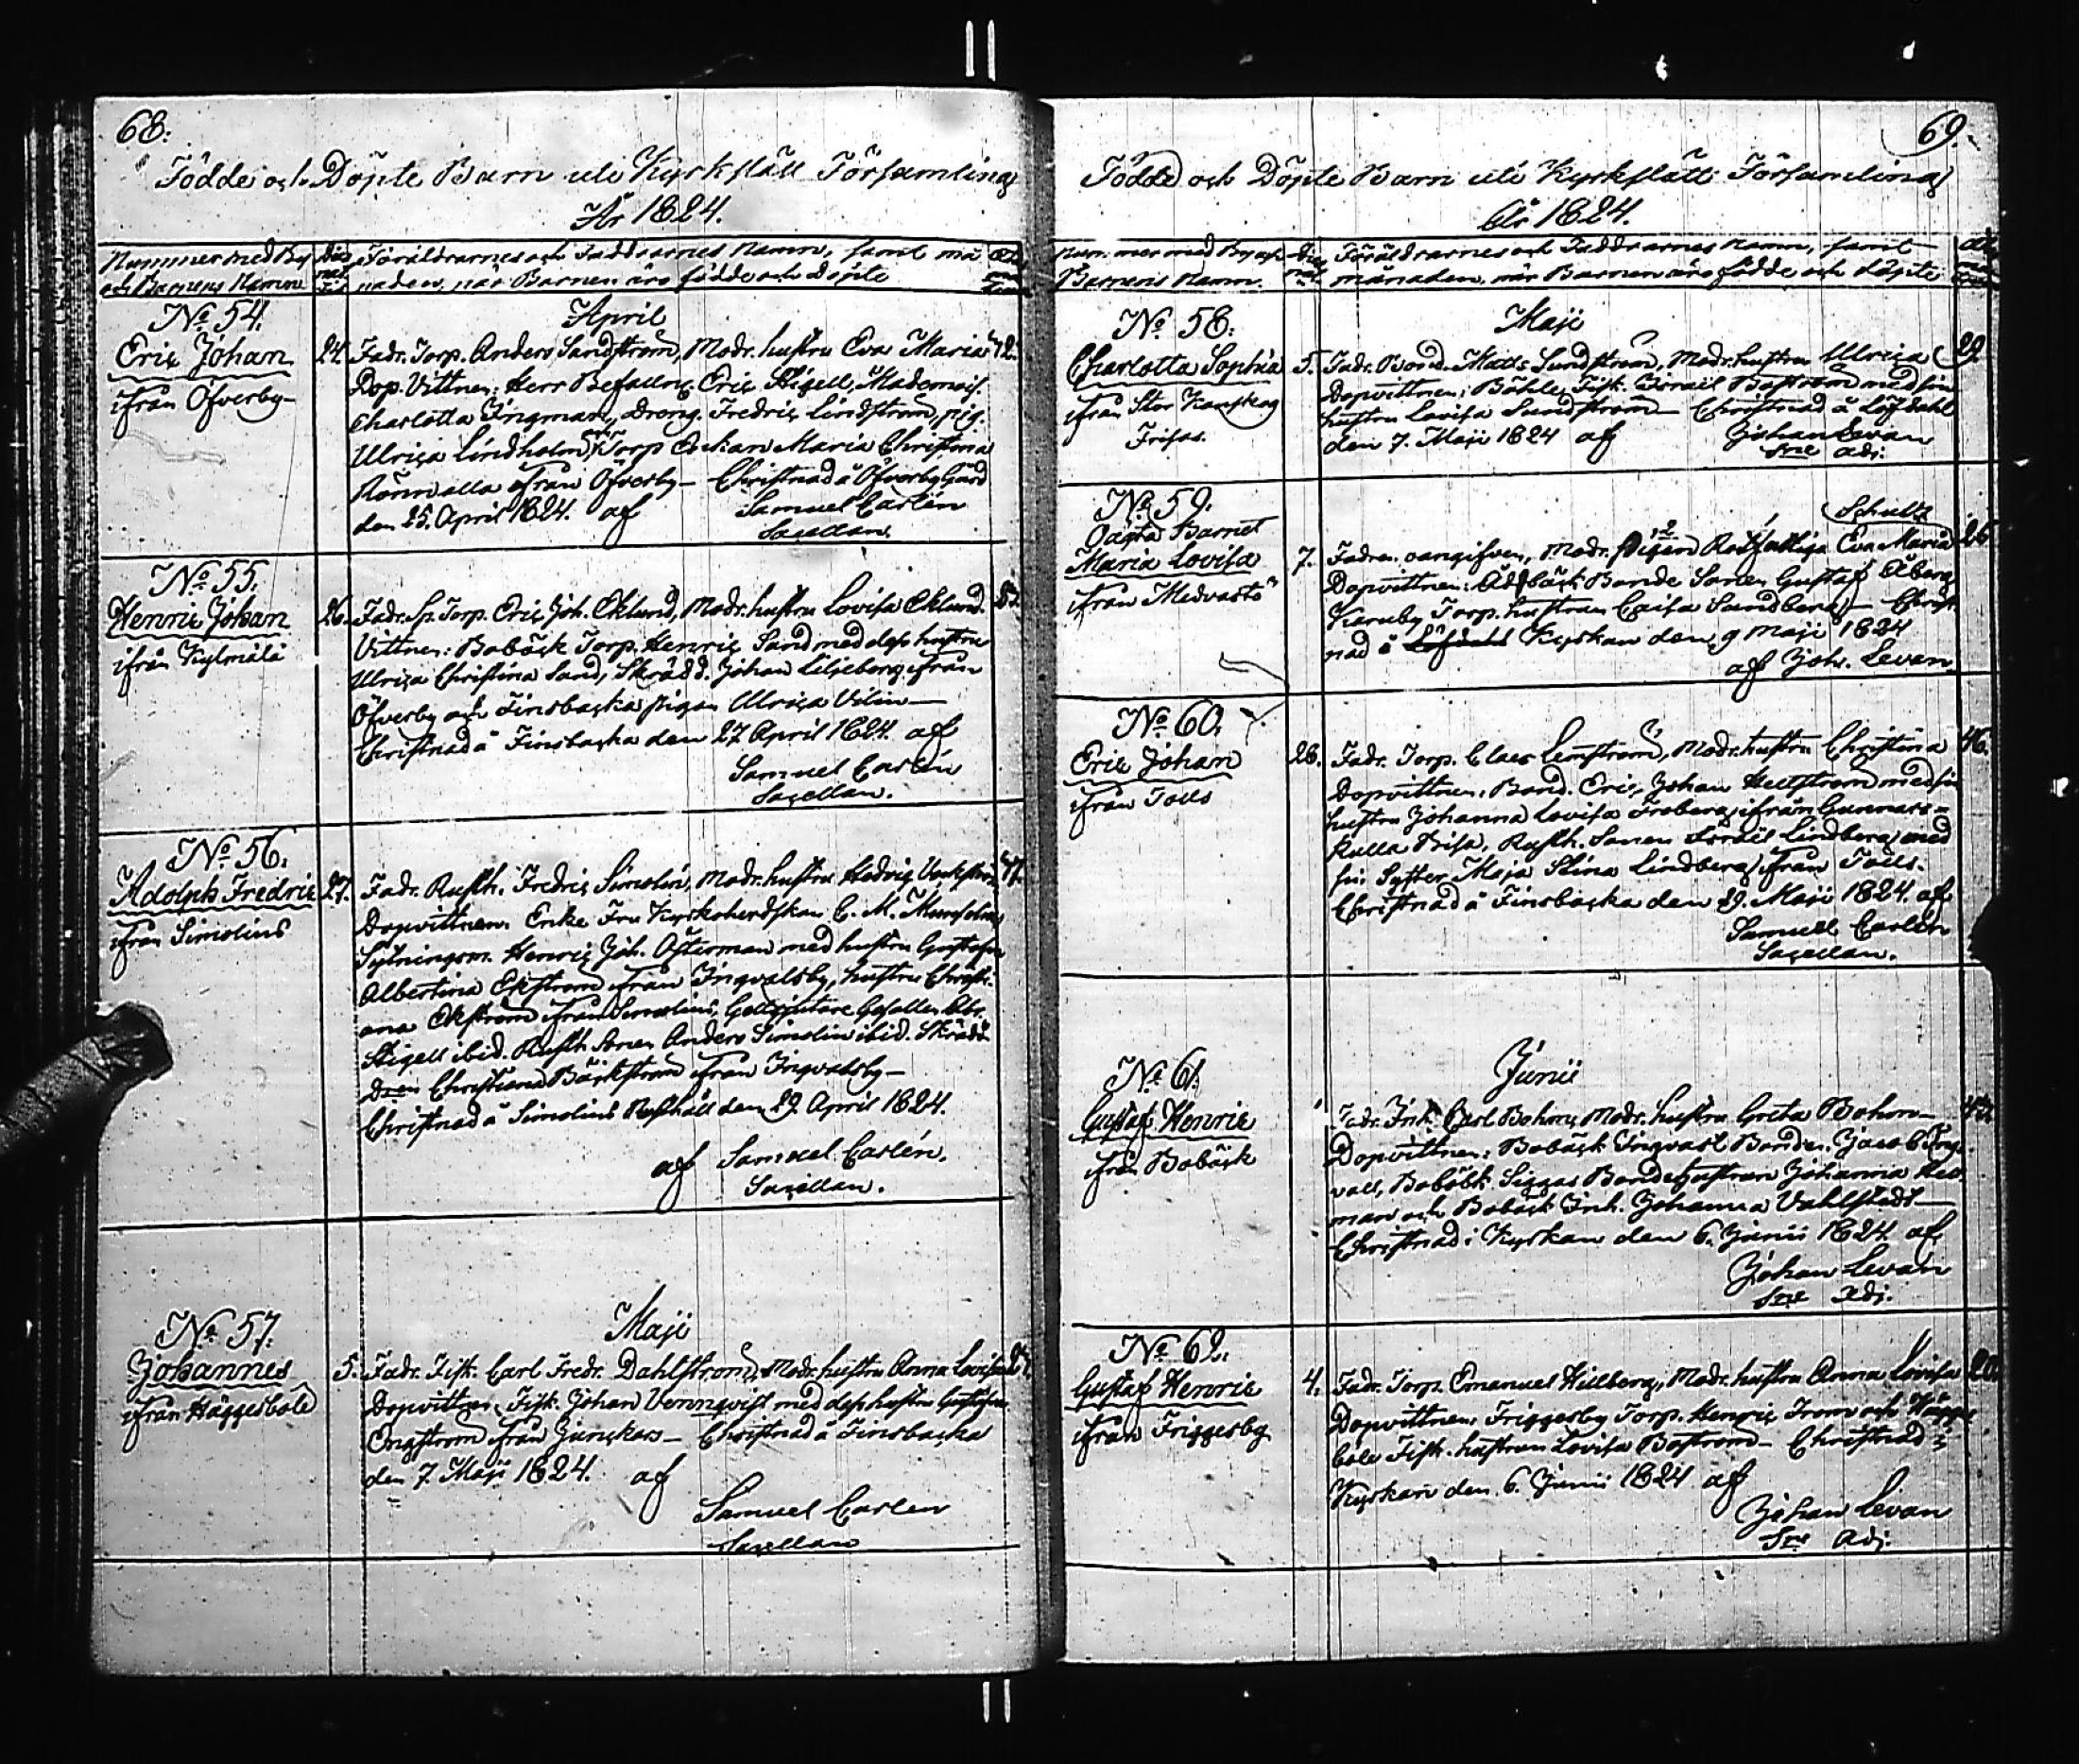 68:
Födde och Döpte Barn uti Kyrkslätt Församling
År 1824.
Nummer med By
och Barnens Namn
Föräldrarnes och Faddrarnes Namn, samt må
naden, när Barnen äro födde och döpte
April
No 54.
Eric Johan
ifrån Öfverby
24. Fadr. Torp. Anders Sandström, Modr. hustru Eva Maria 42.
Dop. Vittnen: Herr Befalln. Eric Stigell, Mademois.
Charlotta Ingman, dreng. Fredric Lindström, pig.
Ulrica Lindholm, Torp Enkan Maria Christina
ifrån Öfverby – Christnad å Öfverby Gård
den 25. April 1824. af Samuel Carlén
Sacellan.
No 55.
Henric Johan
ifrån Kylmälä
26. Fadr. Sp. Torp. Eric Joh. Eklund, Modr. hustru Lovisa Eklund.
Vittnen: Bobäck Torp. Henric Sand med dess hustru
Ulrica Christina Sand, Skrädd. Johan Liljeberg ifrån
Öfverby och Finsbacka pigan Ulrica Vilin –
Christnad å Finsbacka den 27 April 1824. af
Samuel Carlén
Sacellan.
No 56.
Adolph Fredric
ifrån Simolins
27. Fadr. Rusth. Fredric Simolin, Modr. hustru Hedvig
Dopvittnen: Enke Fru Kyrkoherdskan C. M.
Sytningsm. Henric Joh. Österman med hustru Gustafva
Albertina Ekström ifrån Ingvalsby, hustru Christi-
ana Ekström ifrån Simolins, Gesällen Abr.
Stigell ibid. Rusth. Sonen Anders Simolin ibid. Skrädd
Christiana Bäckström ifrån Ingvalsby –
Christnad å Simolins Rusthåll den 29. April 1824.
af Samuel Carlén.
Sacellan.
Maji
No 57.
Johannes
ifrån Häggesböle
5. Fadr. Fisk. Carl Fredr. Dahlström, Modr. hustru Anna Lovisa
Dopvittnen, Fisk. Johan Vennqvist med dess hustru Gustafva
Engström ifrån – Christnad å Finsbacka
den 7. Maji 1824. af
Samuel Carlen
Sacellan
69.
Födde och Döpte Barn uti Kyrkslätt Församling
År 1824.
Nummer med By och
Barnens Namn.
Föräldrarnes och Faddrarnes Namn, samt
månaden, när Barnen äro födde och döpte
Maji
No 58.
Charlotta Sophia
ifrån Stor Kanskog
Frisas.
5. Fadr. Bond. Matts Sundström, Modr. hustru Ulrica 29
Dopvittnen: Böhle Fisk. Israil Boström med sin
hustru Lovisa Sundström – Christnad å Löfdahl
den 7. Maji 1824 af Johan Levan
Sne Adj.
No 59.
Oägta Barnet
Maria Lovisa
ifrån Medvastö
Schultz
7. Fadren oangifven, Modr. pigan Rotfattiga Eva Maria 26
Dopvittnen: Oddbäck Bonde Sonen Gustaf Åberg
Karuby Torp. hustrun Caisa Sandberg – Christ-
nad i Kyrkan den 9 Maji 1824
af Joh. Levan
No 60.
Eric Johan
ifrån Tolls
28. Fadr. Torp. Claes Lenström, Modr. hustru Christina 46.
Dopvittnen. Bond. Eric Johan Hellström med sin
hustru Johanna Lovisa Froberg ifrån Gunnars-
kulla Bisa, Rusth. Sonen Israil Lindberg med
sin Syster Maja Stina Lindberg ifrån Tolls.
Christnad å Finsbacka den 29. Maji 1824. af
Samuel Carlén
Sacellan.
Junii
No 61.
Gustaf Henric
ifrån Bobäck
Fadr. Inh. Carl Bohm, Modr. hustru Greta Bohm –
Dopvittnen: Bobäck Ingvars Bonden Jacob Ing-
vall, Bobäck Siggas Bondehustrun Johanna Hed-
man och Bobäck Inh. Johanna Vahlstedt –
Christnad i Kyrkan den 6. Junii 1824 af
Johan Levan
Sne Adj.
No 62.
Gustaf Henric
ifrån Friggesby
4. Fadr. Torp. Emanuel Hillberg, Modr. hustru Anna Lovisa
Dopvittnen: Friggesby Torp. Henric Trom och Hägges
böle Fisk. hustrun Lovisa Boström – Christnad i
Kyrkan den 6. Junii 1824 af
Johan Levan
Sne Adj.